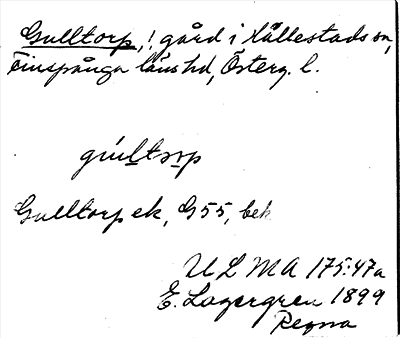 Gulltorp, ! gård i Hällestads sn,
Finspånga läns hd, Österg. l.
gúltorp
Gulltorp ek, G55, bek
ULMA 175:47a
E. Lagergren 1899
Regna